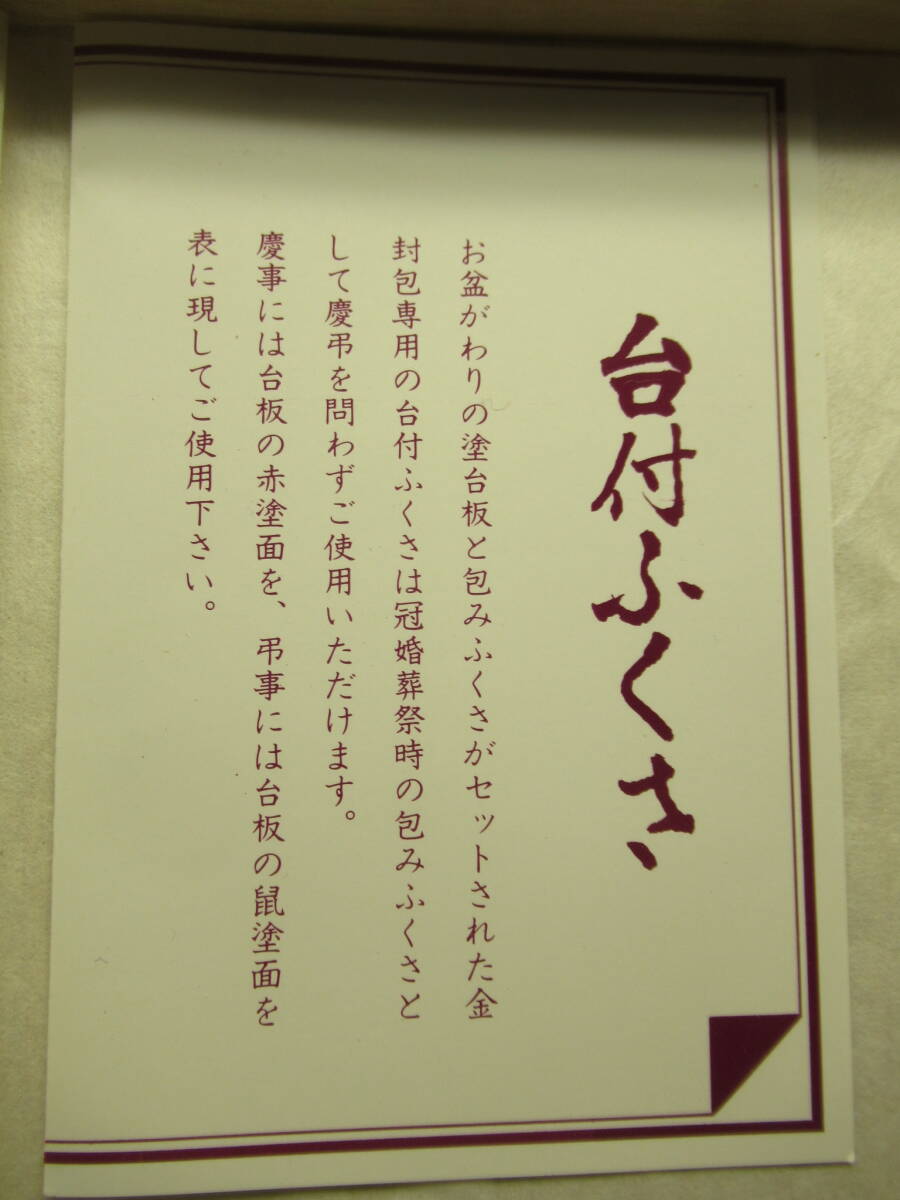 台付ふくさ
お盆がわりの塗台板と包みふくさがセットされた金
封包専用の台付ふくさは冠婚葬祭時の包みふくさと
して慶弔を問わずご使用いただけます。
慶事には台板の赤塗面を、弔事には台板の鼠塗面を
表に現してご使用下さい。